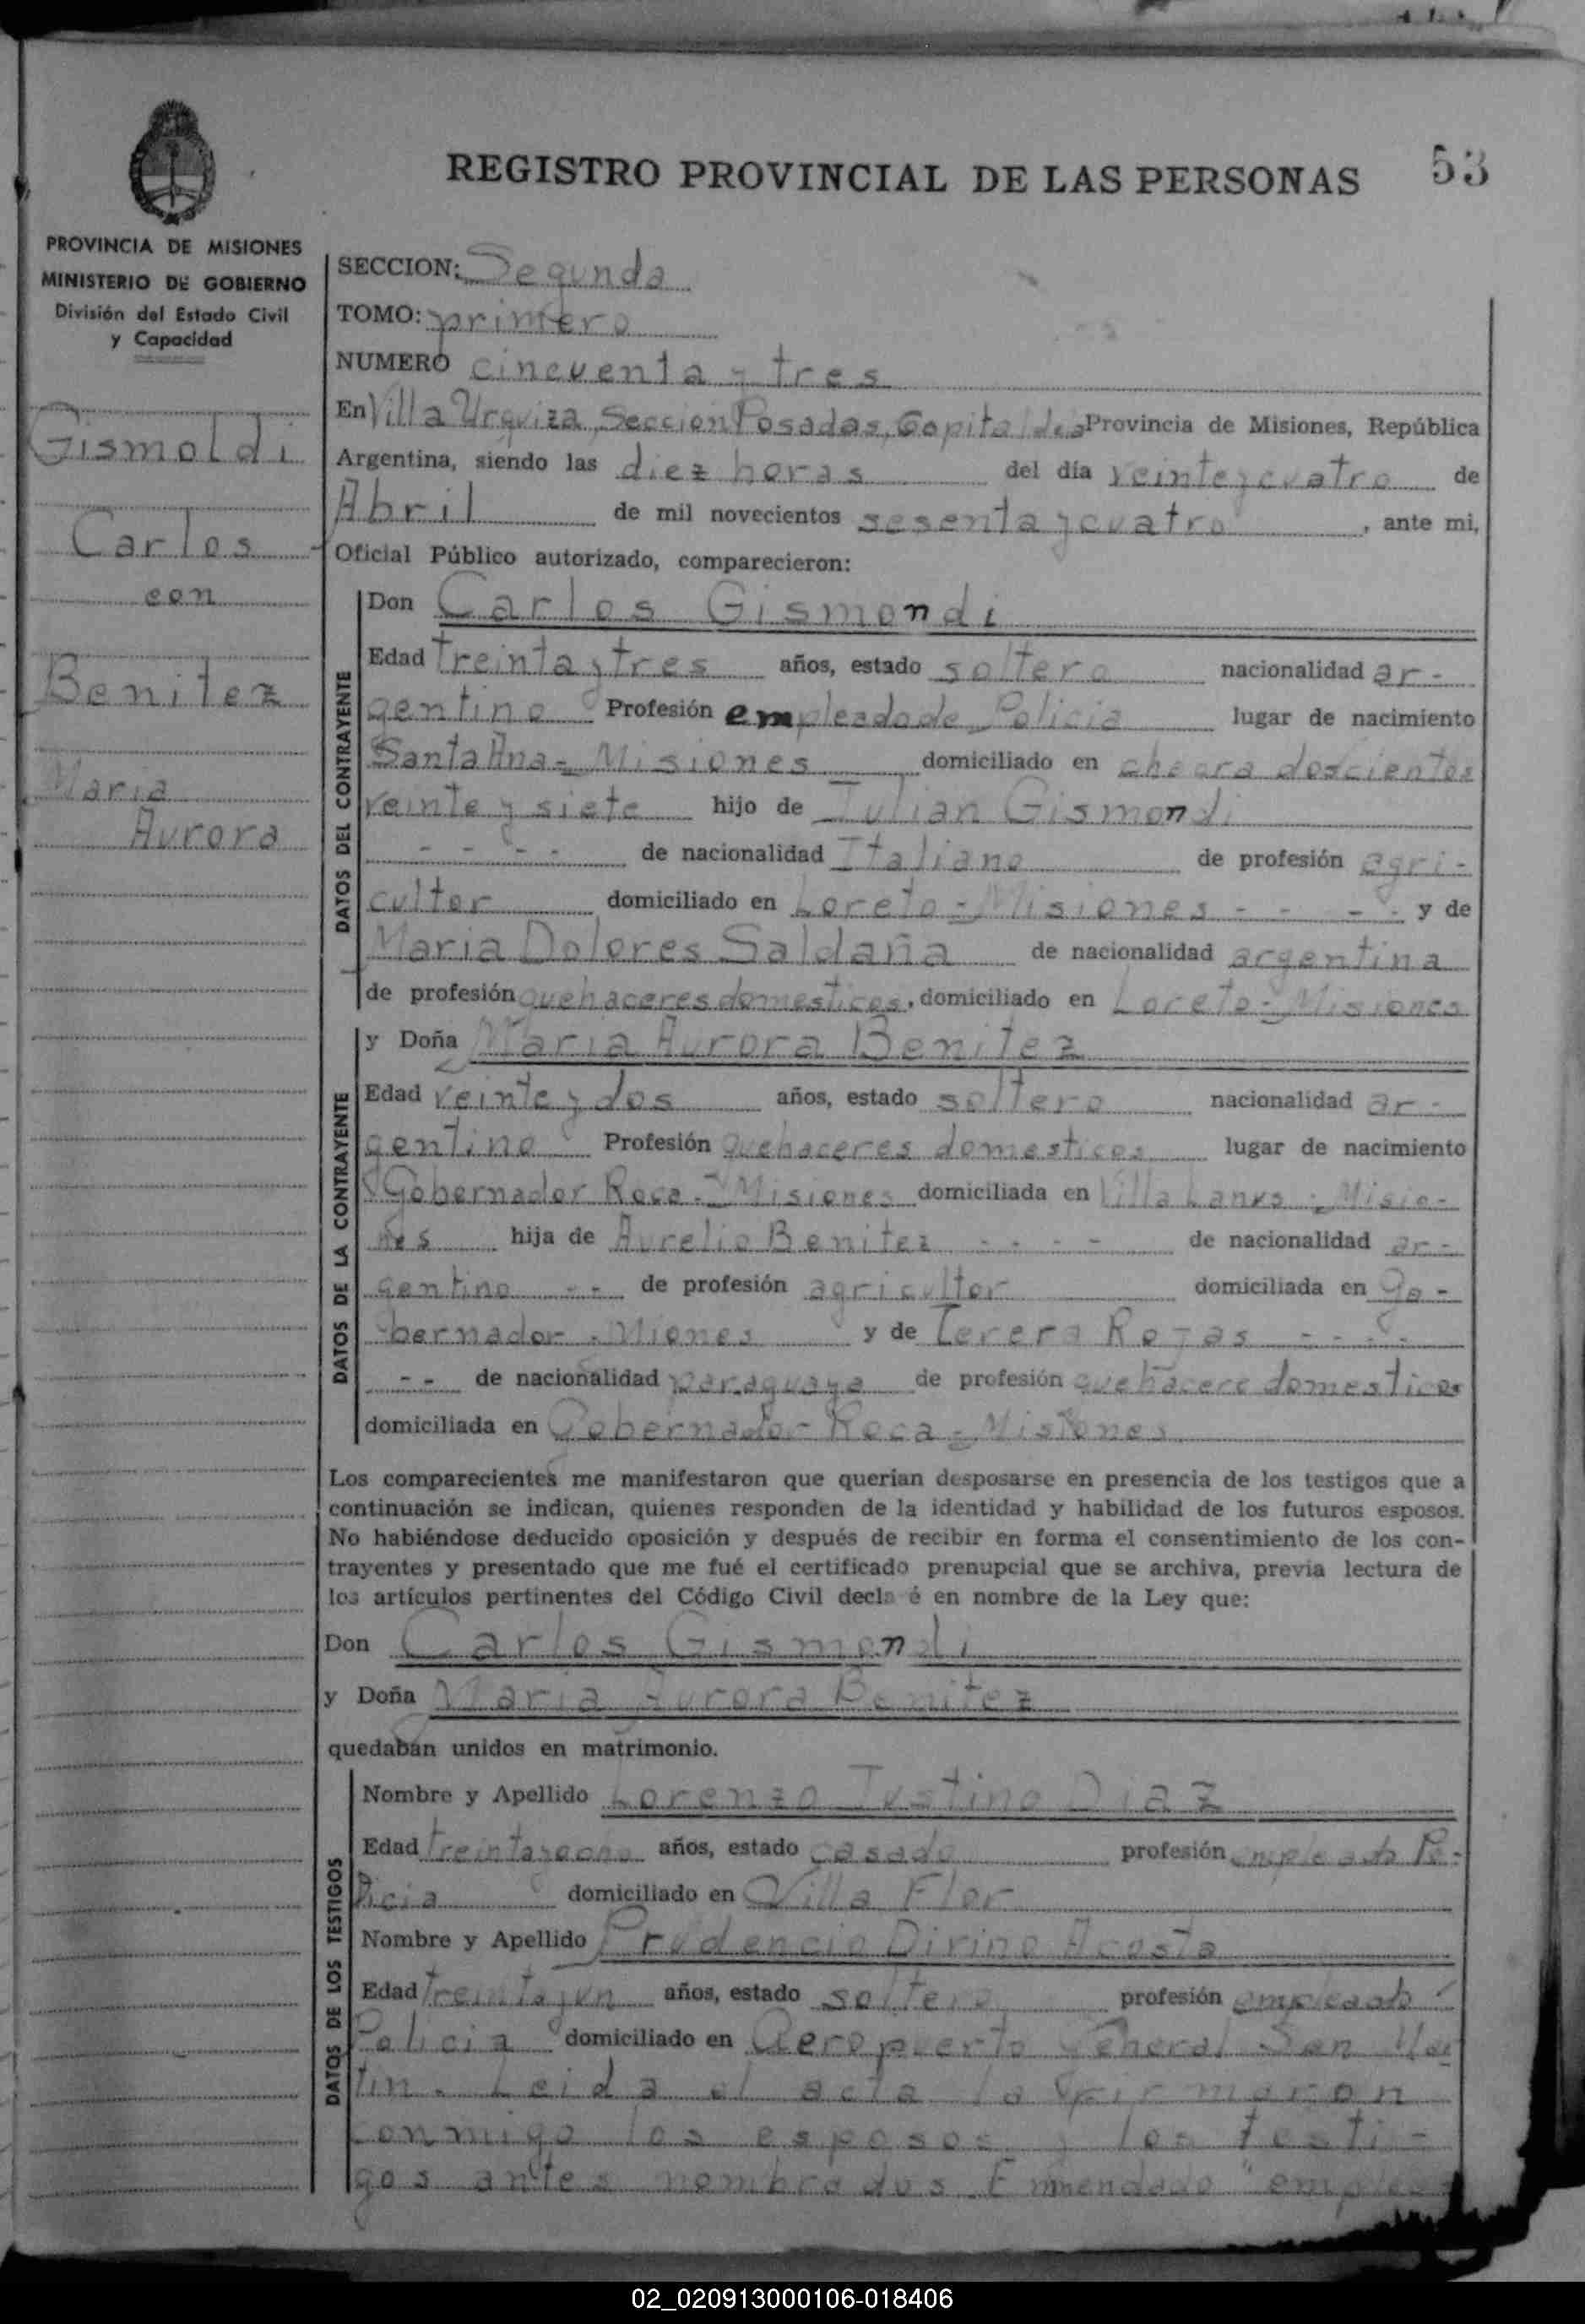 REGISTRO PROVINCIAL DE LAS PERSONAS
53
PROVINCIA DE MISIONES
MINISTERIO DE GOBIERNO
División del Estado Civil
y Capacidad
Gismoldi
Carlos
con
Benitez
Maria
Aurora
SECCION: Segunda
TOMO: primero
NUMERO cincuenta y tres
En Villa Urquiza, Seccion Posadas, Capital de la Provincia de Misiones, República
Argentina, siendo las diez horas del día veinte y cuatro de
Abril de mil novecientos sesenta y cuatro, ante mi,
Oficial Público autorizado, comparecieron:
DATOS DEL CONTRAYENTE
Don Carlos Gismondi
Edad treinta y tres años, estado soltero nacionalidad ar-
gentino Profesión empleado de Policia lugar de nacimiento
Santa Ana - Misiones domiciliado en chacra doscientos
veinte y siete hijo de Julian Gismondi
- - - - de nacionalidad Italiano de profesión agri-
cultor domiciliado en Loreto - Misiones - - - - y de
Maria Dolores Saldaña de nacionalidad argentina
de profesión quehaceres domesticos, domiciliado en Loreto - Misiones
DATOS DE LA CONTRAYENTE
y Doña Maria Aurora Benitez
Edad veinte y dos años, estado soltero nacionalidad ar-
gentino Profesión quehaceres domesticos lugar de nacimiento
Gobernador Roca - Misiones domiciliada en Villa Lanus - Misio-
nes hija de Aurelio Benitez - - - - de nacionalidad ar-
gentino - - de profesión agricultor domiciliada en Go-
bernador - Miones y de Terera Rojas - - - -
- - de nacionalidad paraguaya de profesión quehacere domesticos
domiciliada en Gobernador Roca - Misiones
Los comparecientes me manifestaron que querian desposarse en presencia de los testigos que a
continuación se indican, quienes responden de la identidad y habilidad de los futuros esposos.
No habiéndose deducido oposición y después de recibir en forma el consentimiento de los con-
trayentes y presentado que me fué el certificado prenupcial que se archiva, previa lectura de
los artículos pertinentes del Código Civil decla é en nombre de la Ley que:
Don Carlos Gismondi
y Doña Maria Aurora Benitez
quedaban unidos en matrimonio.
DATOS DE LOS TESTIGOS
Nombre y Apellido Lorenzo Justino Diaz
Edad treinta y ocho años, estado casado profesión empleado Po-
licia domiciliado en Villa Flor
Nombre y Apellido Prudencio Dirino Acosta
Edad treinta y un años, estado soltero profesión empleado
Policia domiciliado en Aeropuerto General San Mar
tin. Leida el acta la firmaron
conmigo los esposos y los testi-
gos antes nombrados. Enmendado "emplea
02_020913000106-018406